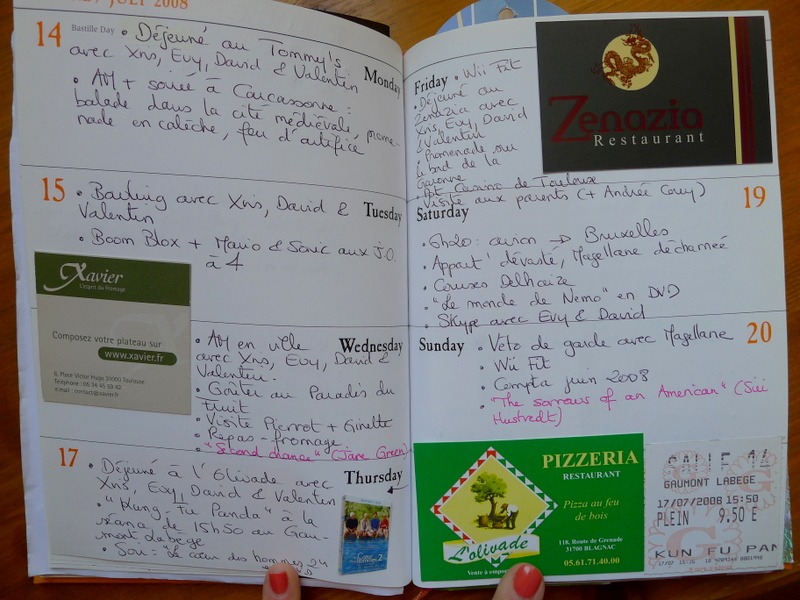 JULY 2008
14 Bastille Day • Déjeuné au Tommy's
avec Xris, Evy, David & Valentin
Monday
• AM + soirée à Carcassonne :
balade dans la cité médiévale, prome-
nade en calèche, feu d'artifice
15 • Bowling avec Xris, David &
Valentin
Tuesday
• Boom Blox + Mario & Sonic aux J.O.
à 4
Xavier
L'esprit du Fromage
Composez votre plateau sur
www.xavier.fr
6, Place Victor Hugo 31000 Toulouse
Téléphone : 05 34 45 59 42
e-mail : contact@xavier.fr
• AM en ville
Wednesday
avec Xris, Evy, David &
Valentin.
• Goûter au Paradis du
Fruit
• Visite Pierret + Ginette
• Repas-fromage
• "Second chance" (Jane Green)
17 • Déjeuné à l'Olivade avec
Thursday
Xris, Evy, David & Valentin
• "Kung-Fu Panda" à la
séance de 15h50 au Gau-
mont Labège
• Soir : "Le cœur des hommes 2"
Friday • Wii Fit
• Déjeuné au
Zenazia avec
Xris, Evy, David
& Valentin
• Promenade au
bord de la
Garonne
Casino de Toulouse
• Visite aux parents (+ Andrée
Zenazia
Restaurant
Saturday
19
• 6h20 : avion → Bruxelles
• Appart' dévasté, Magellane décharnée
• Courses Delhaize
• "Le monde de Nemo" en DVD
• Skype avec Evy & David
Sunday
20
• Véto de garde avec Magellane
• Wii Fit
• Compta juin 2008
• "The sorrows of an American" (Siri
Hustvedt)
PIZZERIA
RESTAURANT
Pizza au feu
de bois
L'olivade
118, Route de Grenade
31700 BLAGNAC
05.61.71.40.00
Vente à emporter
SALLE 14
GAUMONT LABEGE
17/07/2008 15:50
PLEIN 9.50 E
KUNG FU PAN